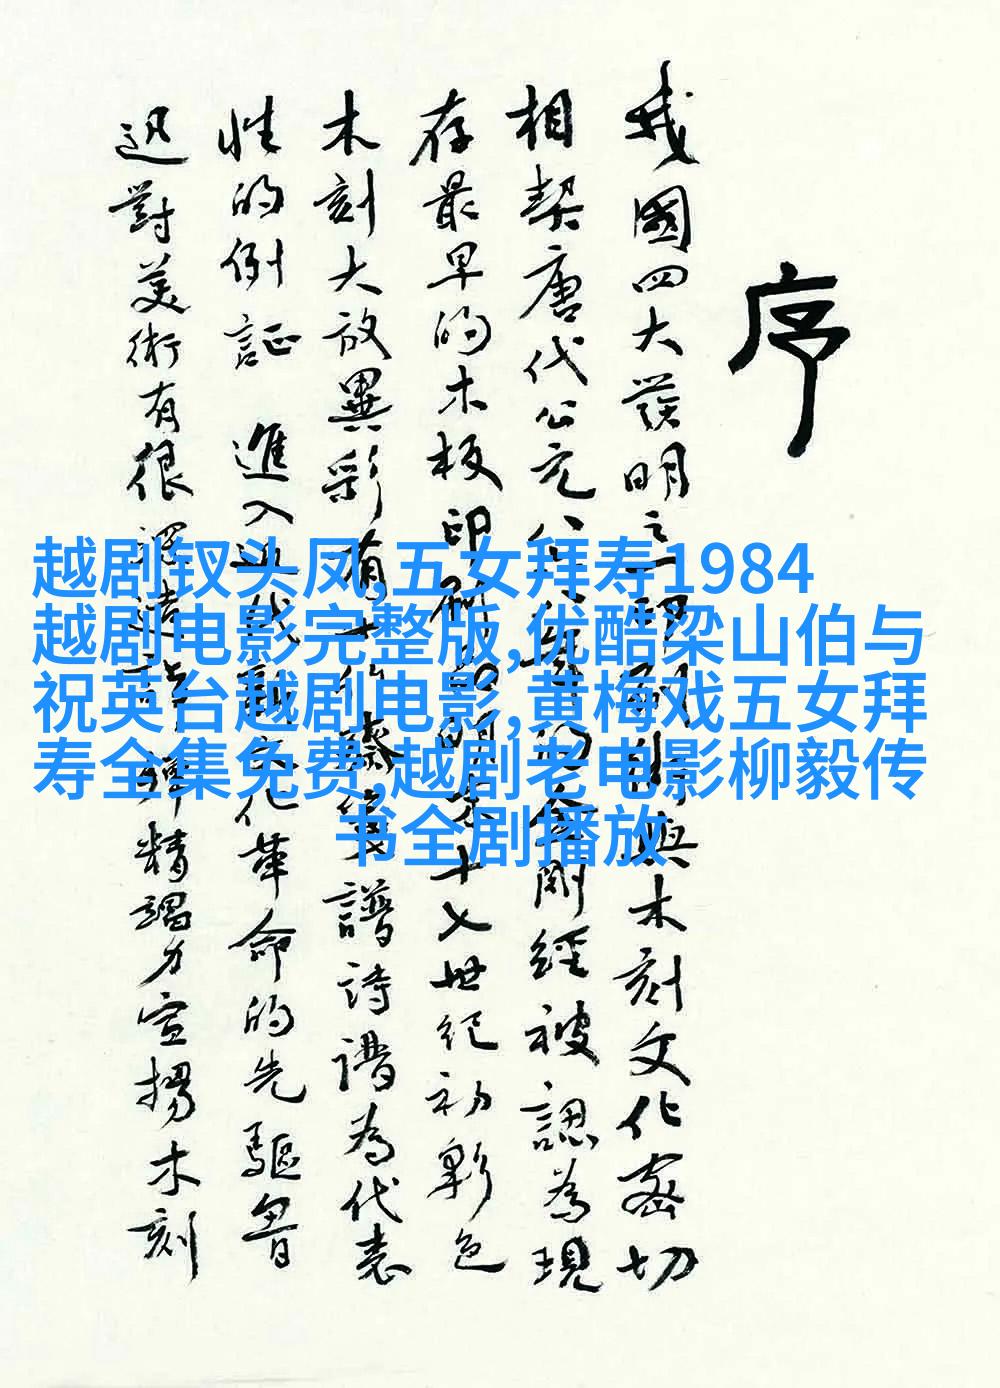 序
我國四大發明之一印刷術與木刻文化密切
相契唐代公元八六八年的金剛經被認為現
存最早的木板印刷品明末十七世紀初彩色
木刻大放異彩有十竹齋箋譜詩譜為代表
性的例証 進入近代新文化革命的先驅魯
迅對美術有很深造詣殫精竭力宣揚木刻
越剧钗头凤,五女拜寿1984
越剧电影完整版,优酷梁山伯与
祝英台越剧电影,黄梅戏五女拜
寿全集免费,越剧老电影柳毅传
书全剧播放